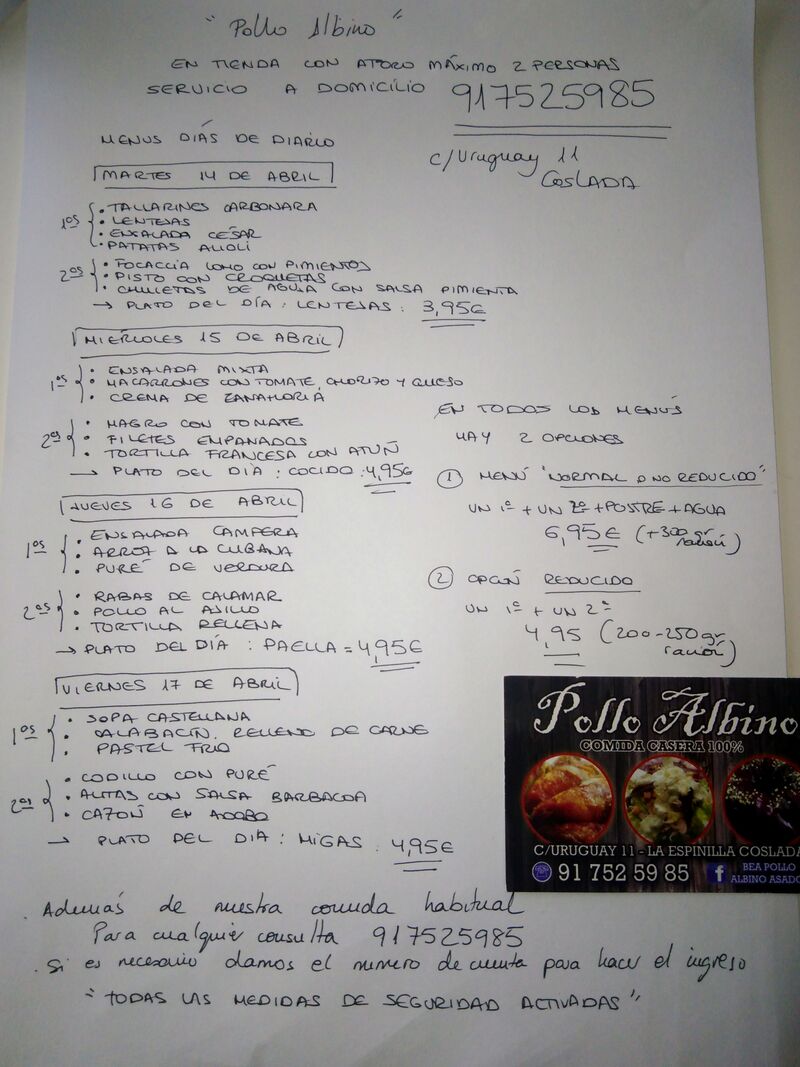 "Pollo Albino"
EN TIENDA CON AFORO MÁXIMO 2 PERSONAS
SERVICIO A DOMICILIO 917525985
MENUS DÍAS DE DIARIO
C/Uruguay 11
COSLADA
MARTES 14 DE ABRIL
1os
• TALLARINES CARBONARA
• LENTEJAS
• ENSALADA CÉSAR
• PATATAS ALIOLI
2os
• FOCACCIA LOMO CON PIMIENTOS
• PISTO CON CROQUETAS
• CHULETAS DE AGUJA CON SALSA PIMIENTA
→ PLATO DEL DÍA : LENTEJAS : 3,95€
MIÉRCOLES 15 DE ABRIL
1os
• ENSALADA MIXTA
• MACARRONES CON TOMATE, CHORIZO Y QUESO
• CREMA DE ZANAHORIA
2os
• MAGRO CON TOMATE
• FILETES EMPANADOS
• TORTILLA FRANCESA CON ATÚN
→ PLATO DEL DÍA : COCIDO : 4,95€
JUEVES 16 DE ABRIL
1os
• ENSALADA CAMPERA
• ARROZ A LA CUBANA
• PURÉ DE VERDURA
2os
• RABAS DE CALAMAR
• POLLO AL AJILLO
• TORTILLA RELLENA
→ PLATO DEL DÍA : PAELLA = 4,95€
VIERNES 17 DE ABRIL
1os
• SOPA CASTELLANA
• CALABACÍN RELLENO DE CARNE
• PASTEL FRIO
2os
• CODILLO CON PURÉ
• ALITAS CON SALSA BARBACOA
• CAZÓN EN ADOBO
→ PLATO DEL DIA : MIGAS : 4,95€
EN TODOS LOS MENÚS
HAY 2 OPCIONES
1 MENÚ "NORMAL O NO REDUCIDO"
UN 1º + UN 2º + POSTRE + AGUA
6,95€ (+300 gr ración)
2 OPCIÓN REDUCIDO
UN 1º + UN 2º
4,95 (200-250 gr ración)
Pollo Albino
COMIDA CASERA 100%
C/URUGUAY 11 - LA ESPINILLA COSLADA
91 752 59 85
f BEA POLLO
ALBINO ASADO
. Además de nuestra comida habitual
Para cualquier consulta 917525985
. Si es necesario damos el numero de cuenta para hacer el ingreso
"TODAS LAS MEDIDAS DE SEGURIDAD ACTIVADAS"